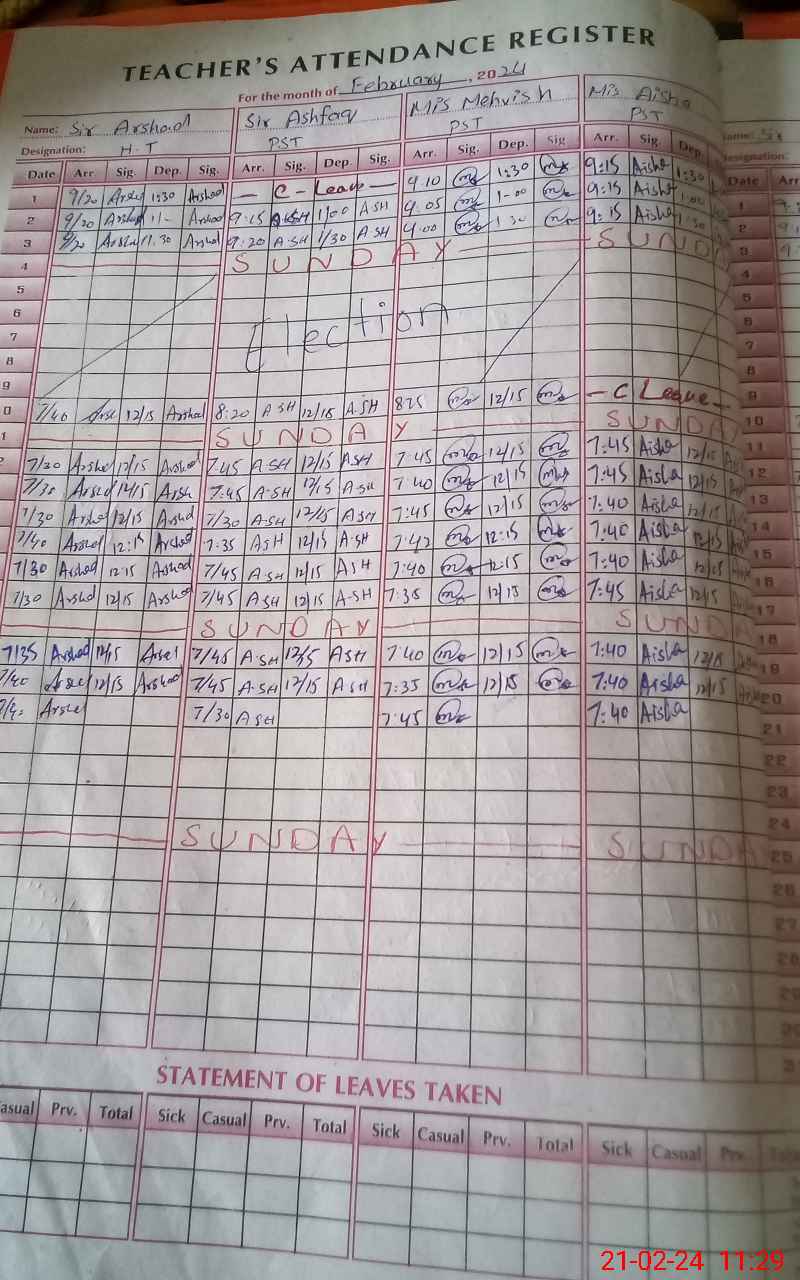 TEACHER'S ATTENDANCE REGISTER
For the month of February, 2024
Name: Sir Arshad Sir Ashfaq Mis Mehvish Mis Aisha
Designation: H.T PST PST PST
Date Arr Sig. Dep. Sig. Arr. Sig. Dep. Sig. Arr. Sig. Dep. Sig Arr. Sig. Dep.
1 9/20 Arshd 1:30 Arshad — C - Leave — 9.10 1:30 9:15 Aisha 1:30
2 9/20 Arshd 11- Arshad 9:15 ASH 1/00 ASH 9.05 1-00 9:15 Aisha 1:00
3 9/20 Arshd 11.30 Arshad 9:20 ASH 1/30 ASH 9.00 1 30 9:15 Aisha 1:30
4 SUNDAY SUND
5
6 Election
7
8
9
0 7/40 Arsh 12/15 Arshad 8:20 ASH 12/15 ASH 825 12/15 — C Leave — 10
1 SUNDAY SUNDAY 11
7/30 Arshad 12/15 Arshad 7:45 ASH 12/15 ASH 7:45 12/15 7:45 Aisha 12/15 12
7/35 Arshad 12/15 Arsh 7:45 ASH 12/15 ASH 7:40 12/15 7:45 Aisha 12/15 13
7/30 Arshad 12/15 Arshd 7/30 ASH 12/15 ASH 7:45 12/15 7:40 Aisha 12/15 14
7/40 Arshad 12:15 Arshad 7:35 ASH 12/15 ASH 7:42 12:15 7:40 Aisha 12/15 15
7/30 Arshad 12:15 Arshad 7/45 ASH 12/15 ASH 7:40 12:15 7:40 Aisha 12/15 16
7/30 Arshd 12/15 Arshad 7/45 ASH 12/15 ASH 7:35 12/15 7:45 Aisha 12/15 17
SUNDAY SUNDA 18
7/35 Arshad 12/15 Arshd 7/45 ASH 12/15 ASH 7:40 12/15 7:40 Aisha 12/15 19
7/40 Arshd 12/15 Arshad 7/45 ASH 12/15 ASH 7:35 12/15 7:40 Aisha 12/15 20
Arshd 7/30 ASH 7:45 7:40 Aisha 21
22
23
24
SUNDAY SUNDA 25
26
27
28
29
STATEMENT OF LEAVES TAKEN
Casual Prv. Total Sick Casual Prv. Total Sick Casual Prv. Total Sick Casual Prv. Total
21-02-24 11:29